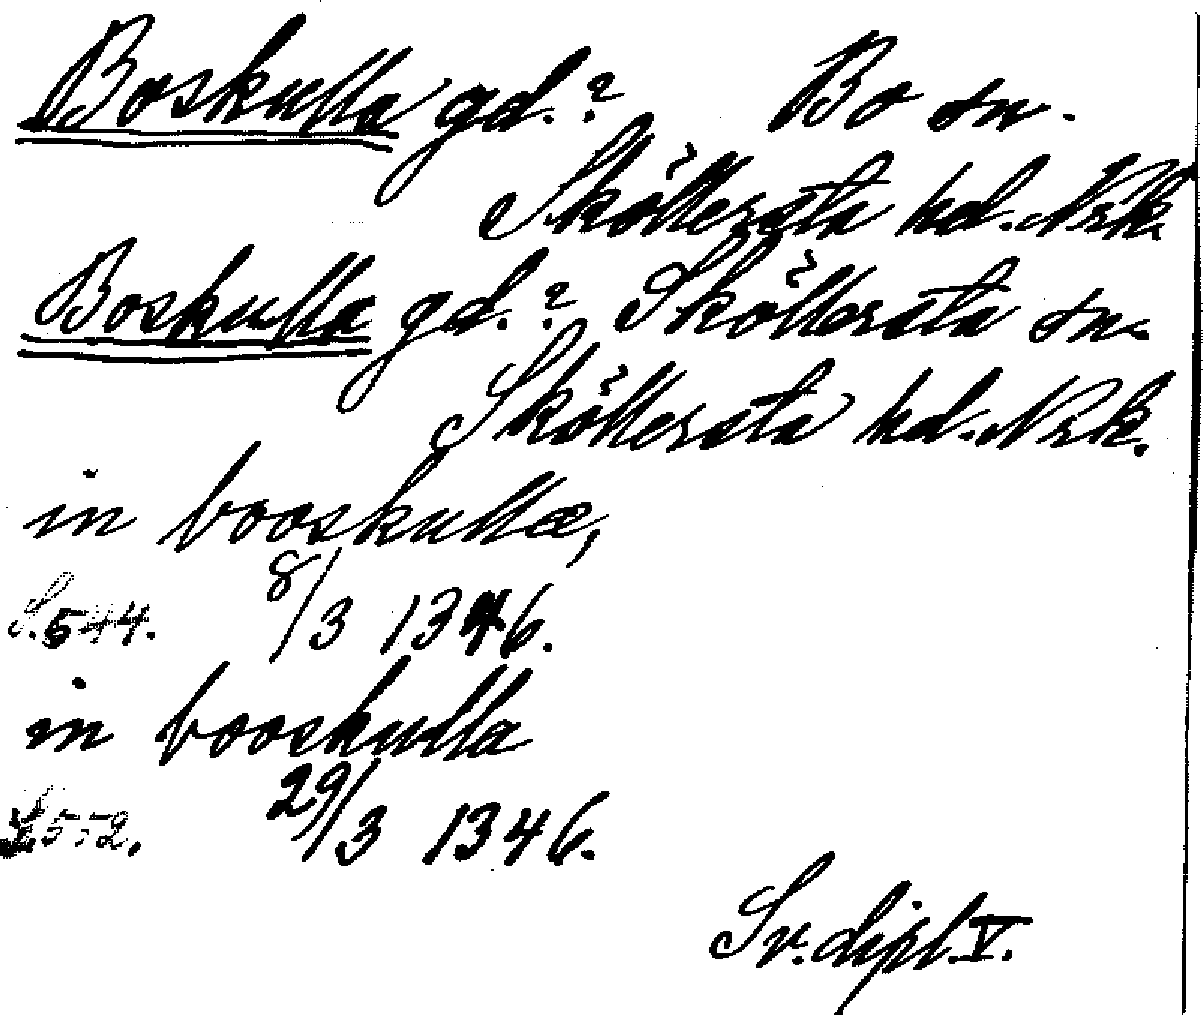 Boskulla gd.? Bo sn.
Sköllersta hd. Nrk.
Boskulla gd.? Sköllersta sn.
Sköllersta hd. Nrk.
in booskullæ,
S. 544. 8/3 1346.
in booskulla
S. 552. 29/3 1346.
Sv. dipl. V.